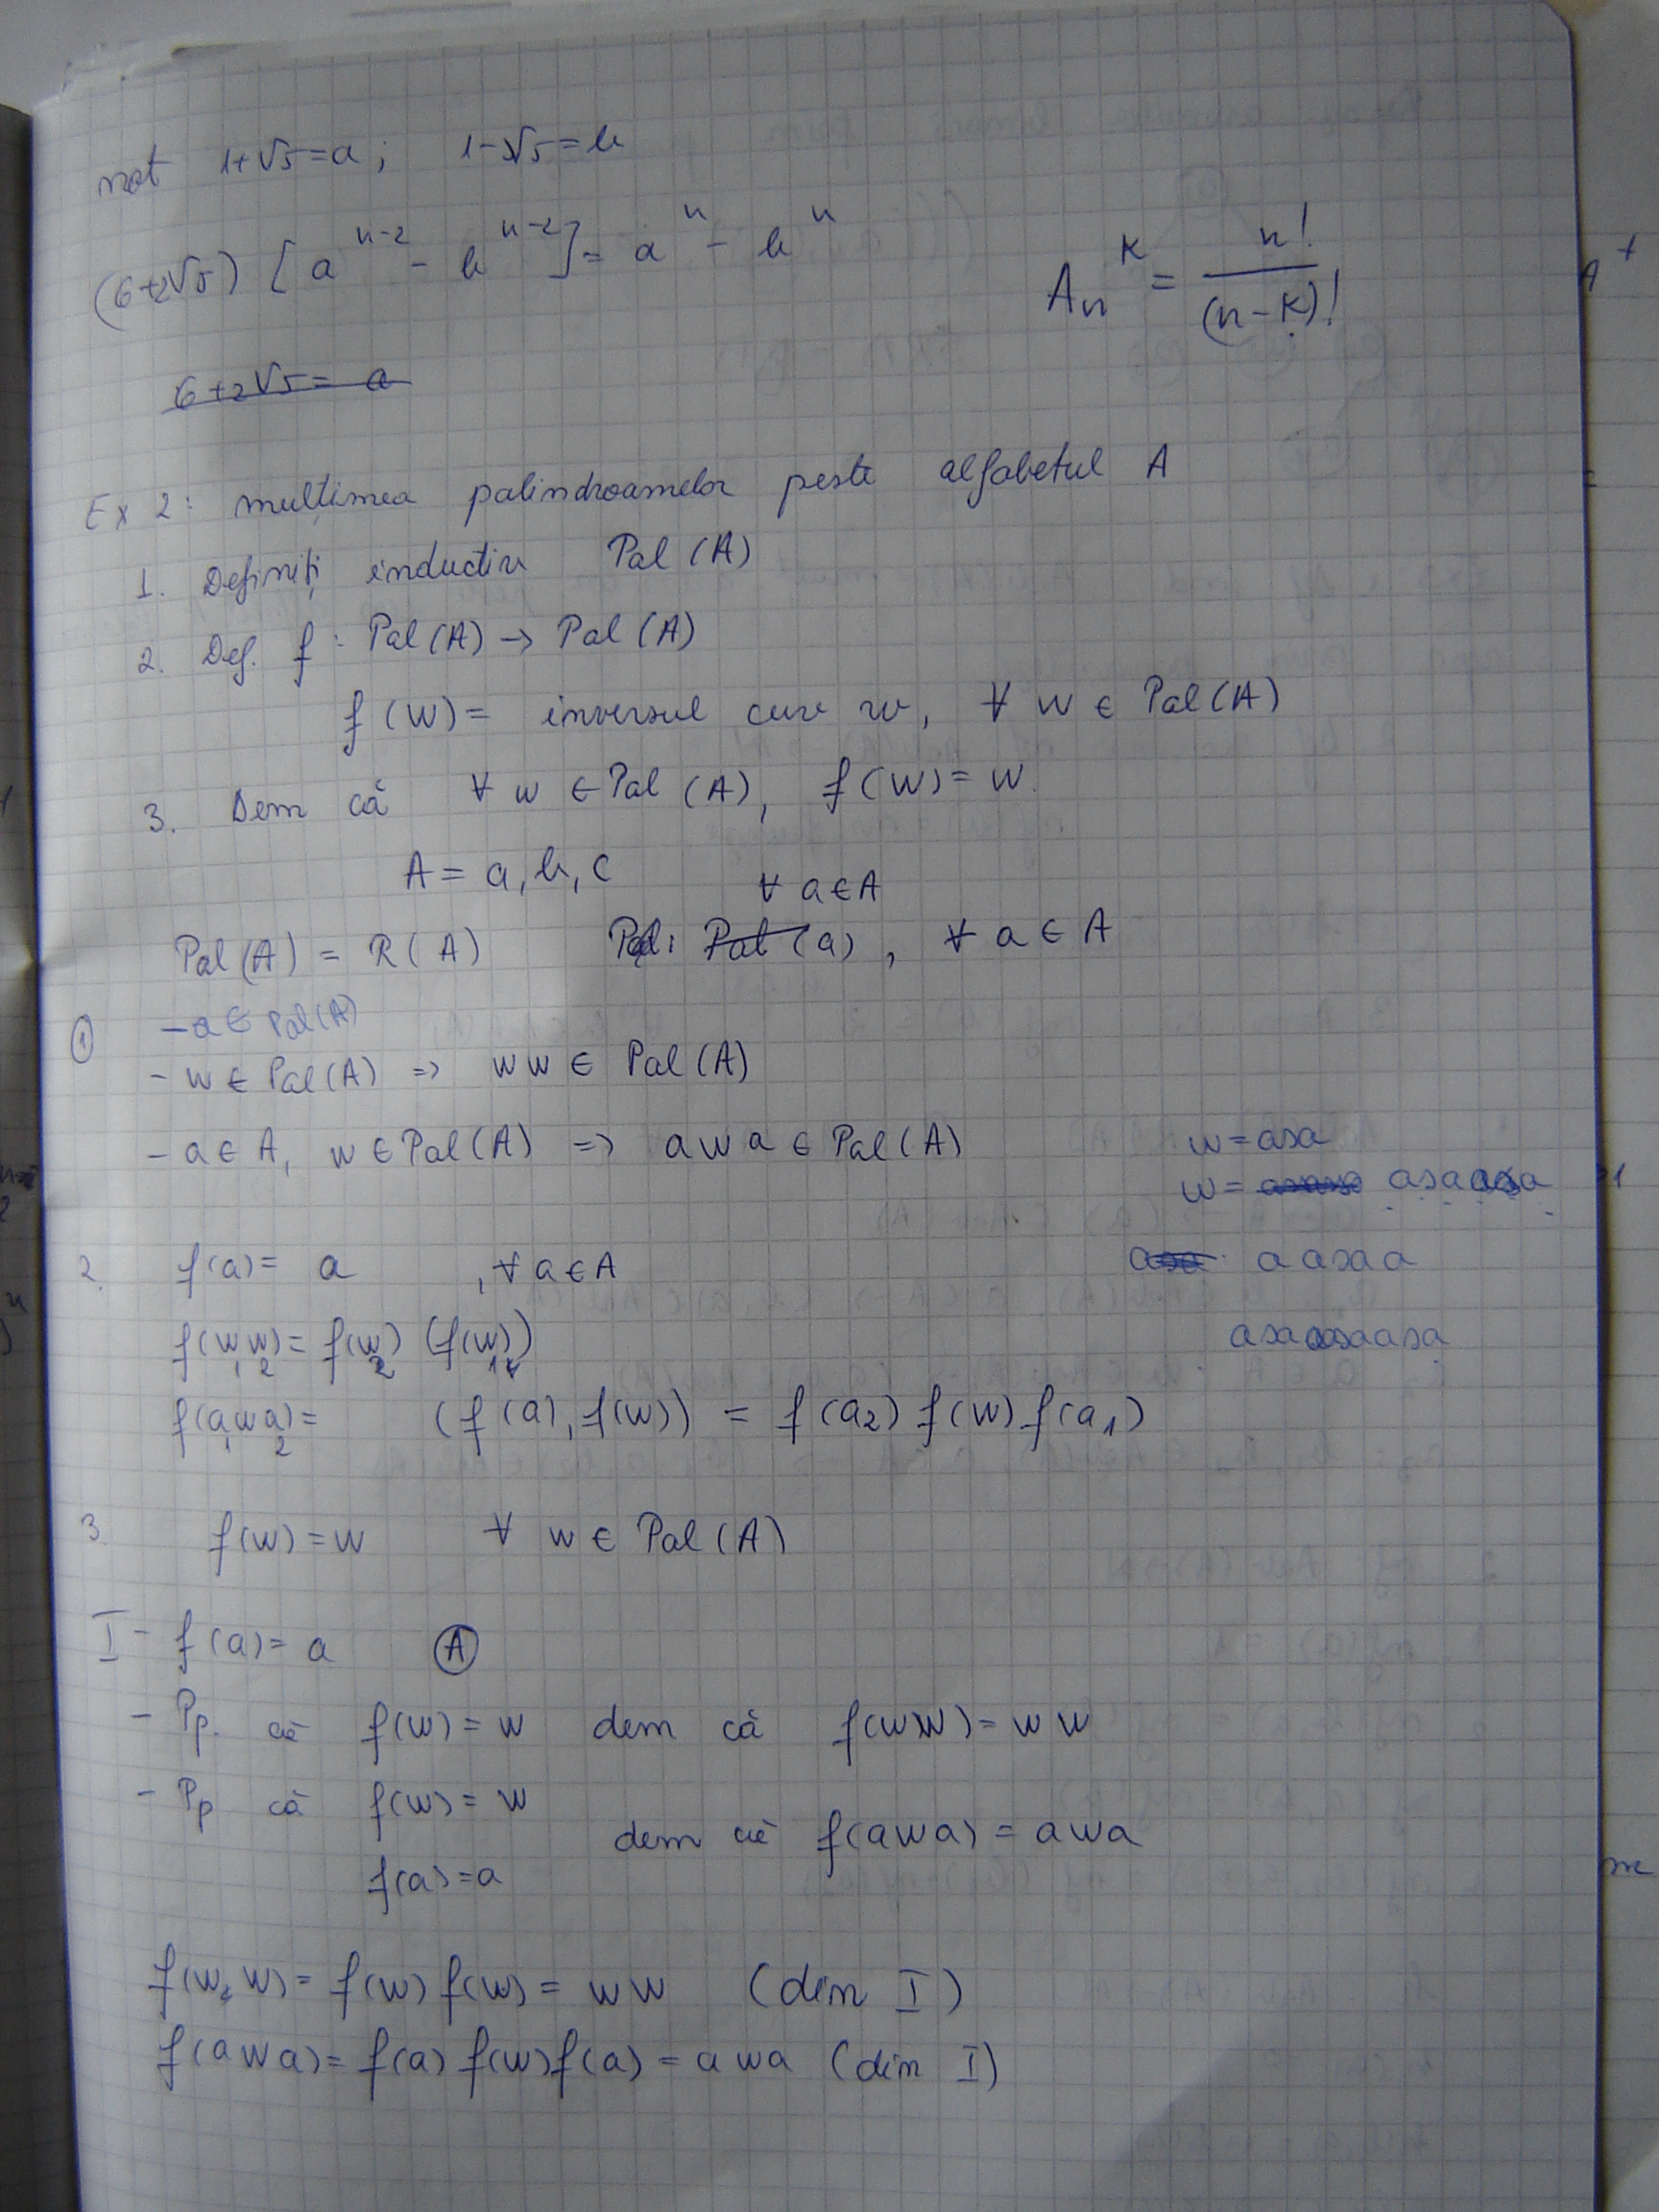 not 1+√5=a; 1-√5=b
(6+2√5) [a^{n-2} - b^{n-2}] = a^n - b^n
A_n^k = n! / (n-k)!
6+2√5= a
Ex 2: mulțimea palindroamelor peste alfabetul A
1. Definiți inductiv Pal (A)
2. Def. f : Pal(A) → Pal (A)
f (w) = inversul cuv w, ∀ w ∈ Pal(A)
3. Dem că ∀ w ∈ Pal (A), f(w) = w.
A = a, b, c
∀ a ∈ A
Pal(A) = R(A) Pal: Pal (a), ∀ a ∈ A
① - a ∈ Pal(A)
- w ∈ Pal(A) ⇒ w w ∈ Pal(A)
- a ∈ A, w ∈ Pal(A) ⇒ a w a ∈ Pal(A)
w = asa
w = asaasa
2. f(a) = a , ∀ a ∈ A
a asa a
f(w₁w₂) = f(w₂) (f(w)₁)
f(a₁wa₂) = (f(a), f(w)) = f(a₂) f(w) f(a₁)
3. f(w) = w ∀ w ∈ Pal(A)
I - f(a) = a Ⓐ
- Pp. că f(w) = w dem că f(ww) = w w
- Pp că f(w) = w
dem că f(awa) = awa
f(a) = a
f(w w) = f(w) f(w) = w w (din I)
f(a w a) = f(a) f(w) f(a) = a wa (din I)